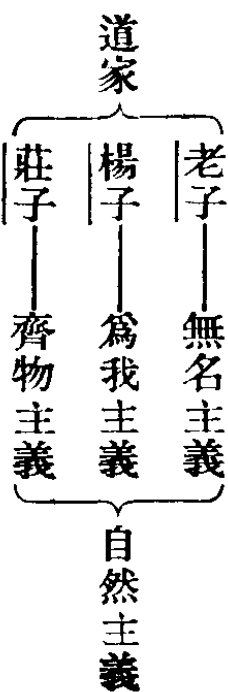 道家
老子——無名主義
楊子——爲我主義
莊子——齊物主義
自然主義